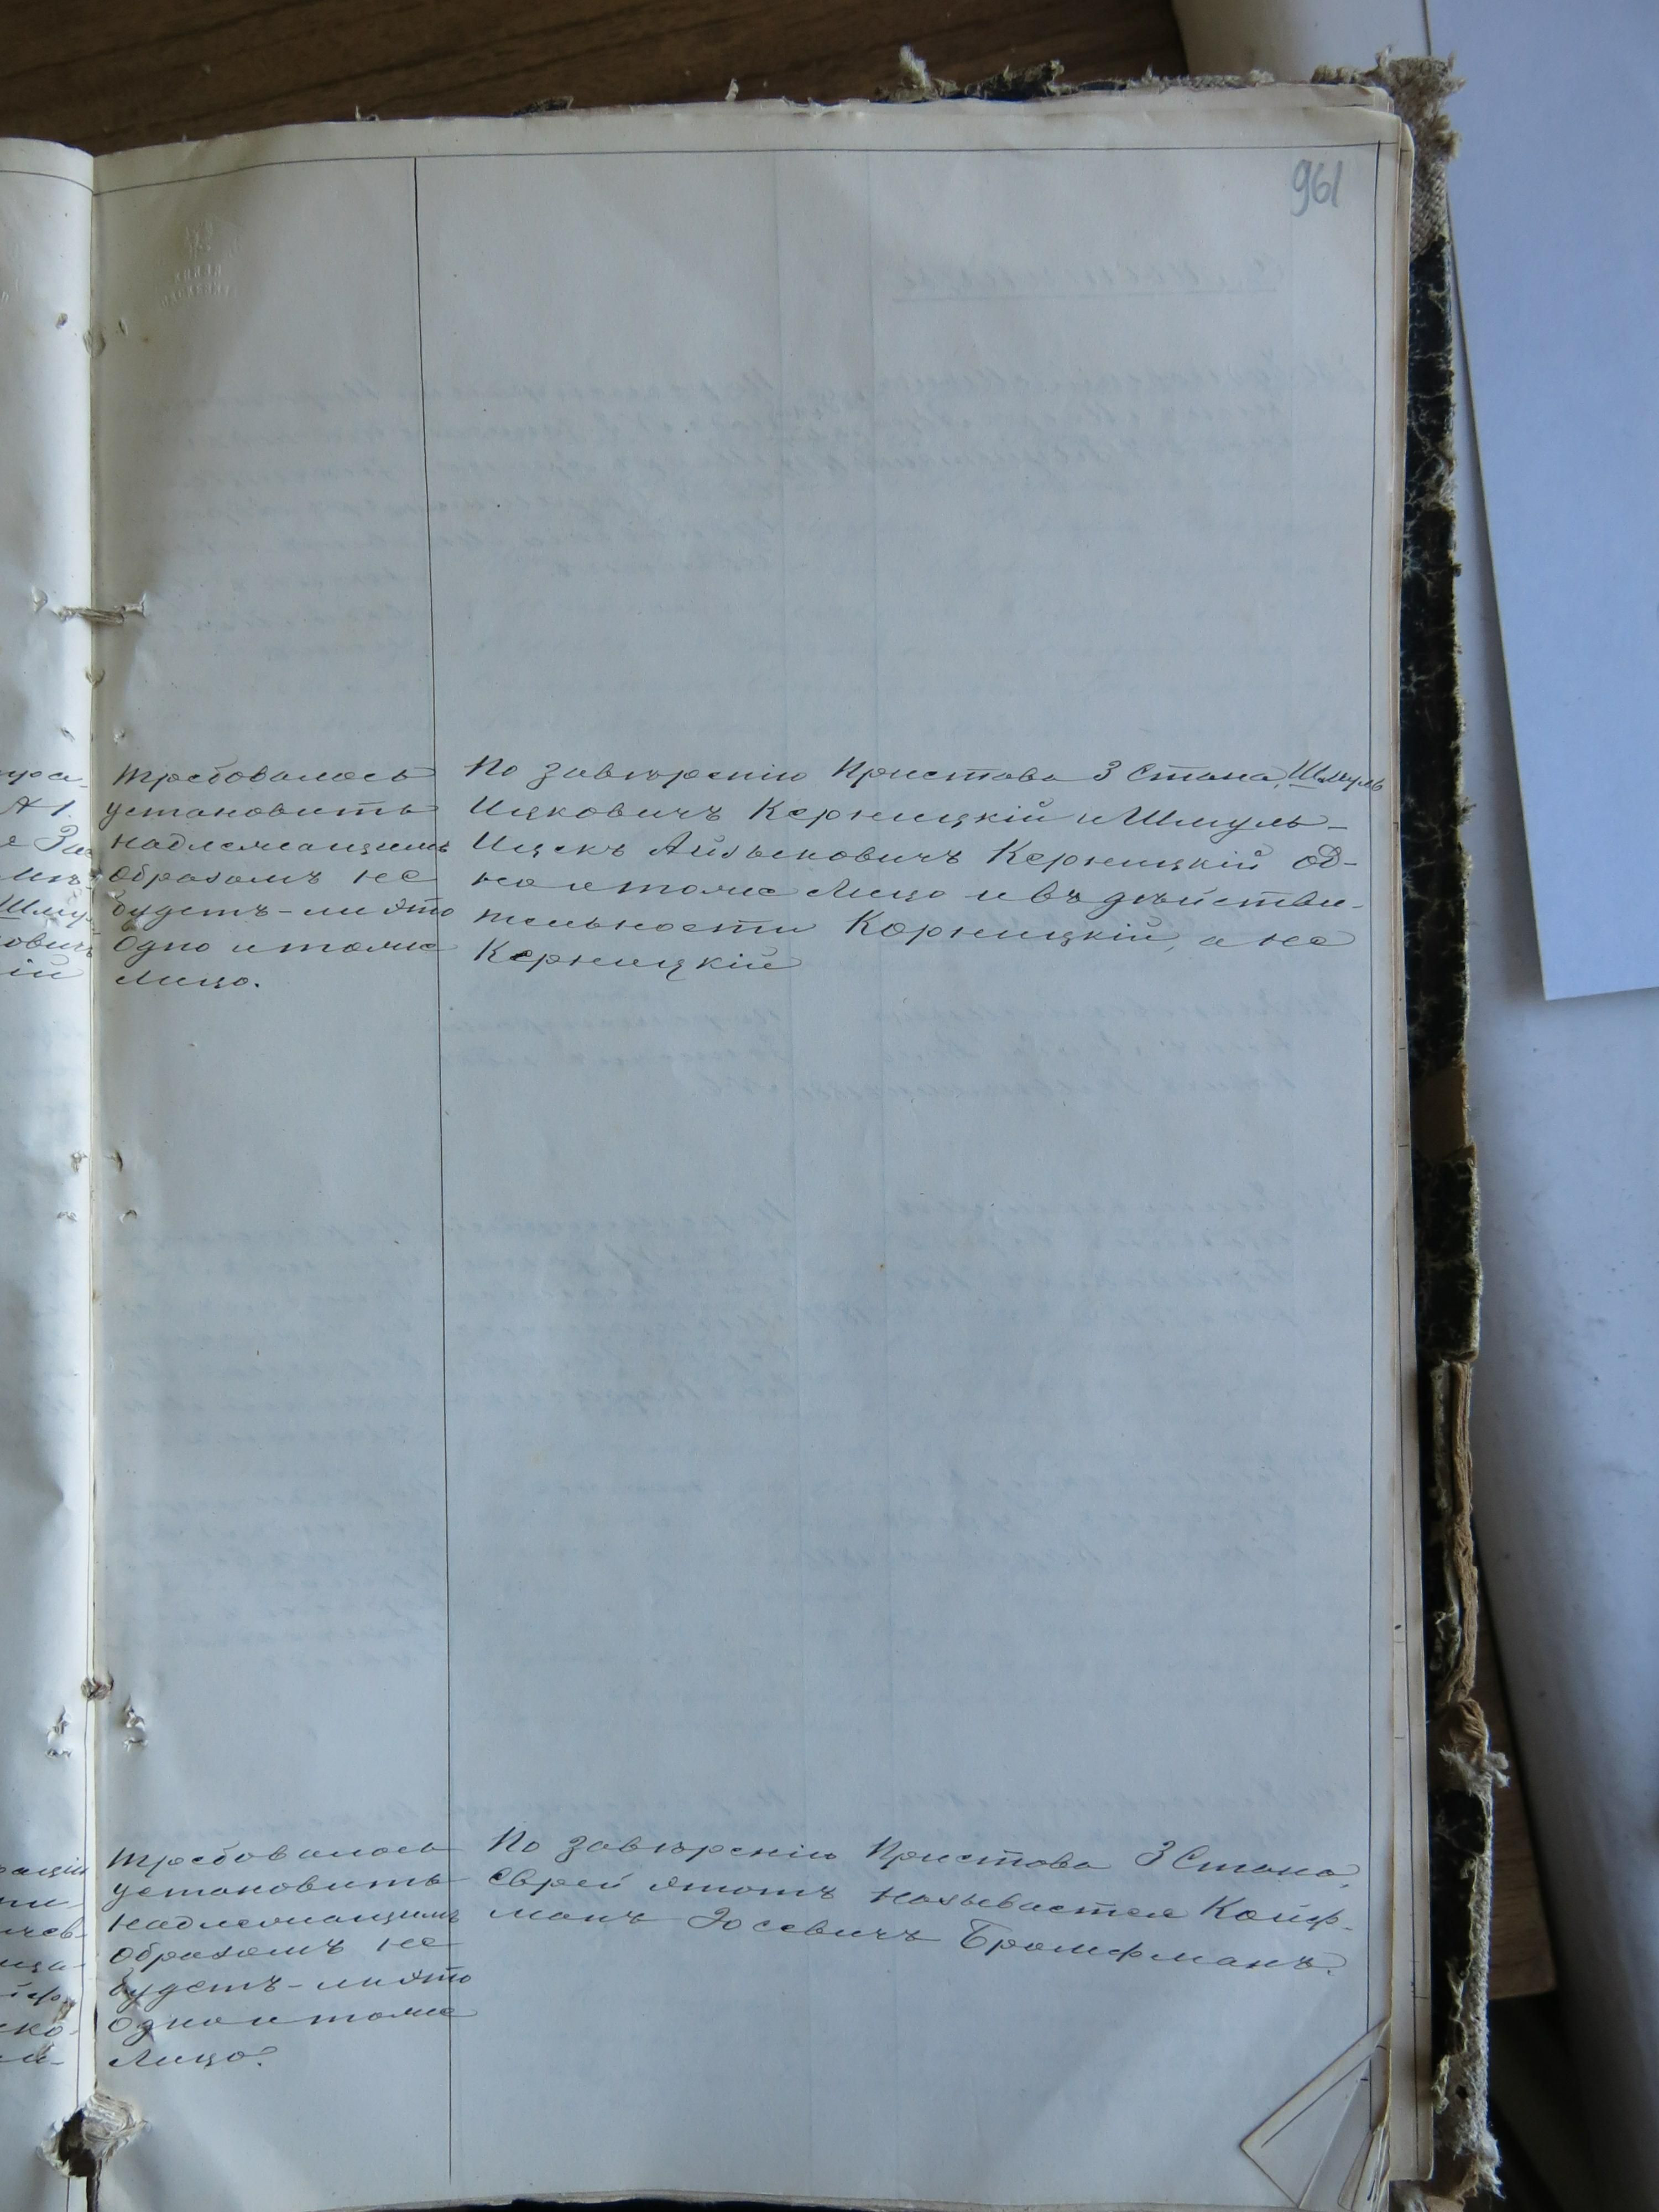 961
Требовалось
установить
надлежащимъ
образомъ не
будетъ-ли это
одно и тоже
лицо.
По завѣренію Пристава 3 Стана, Шмуль
Ицковичъ Керницкій и Шмуль-
Ицекъ Айзыковичъ Керницкій од-
но и тоже лицо и въ дѣйстви-
тельности Корницкій, а не
Керницкій
Требовалось
установить
надлежащимъ
образомъ не
будетъ-ли это
одно и тоже
лицо.
По завѣренію Пристава 3 Стана,
еврей этотъ называется Койф-
манъ Іосевичъ Бромфманъ.